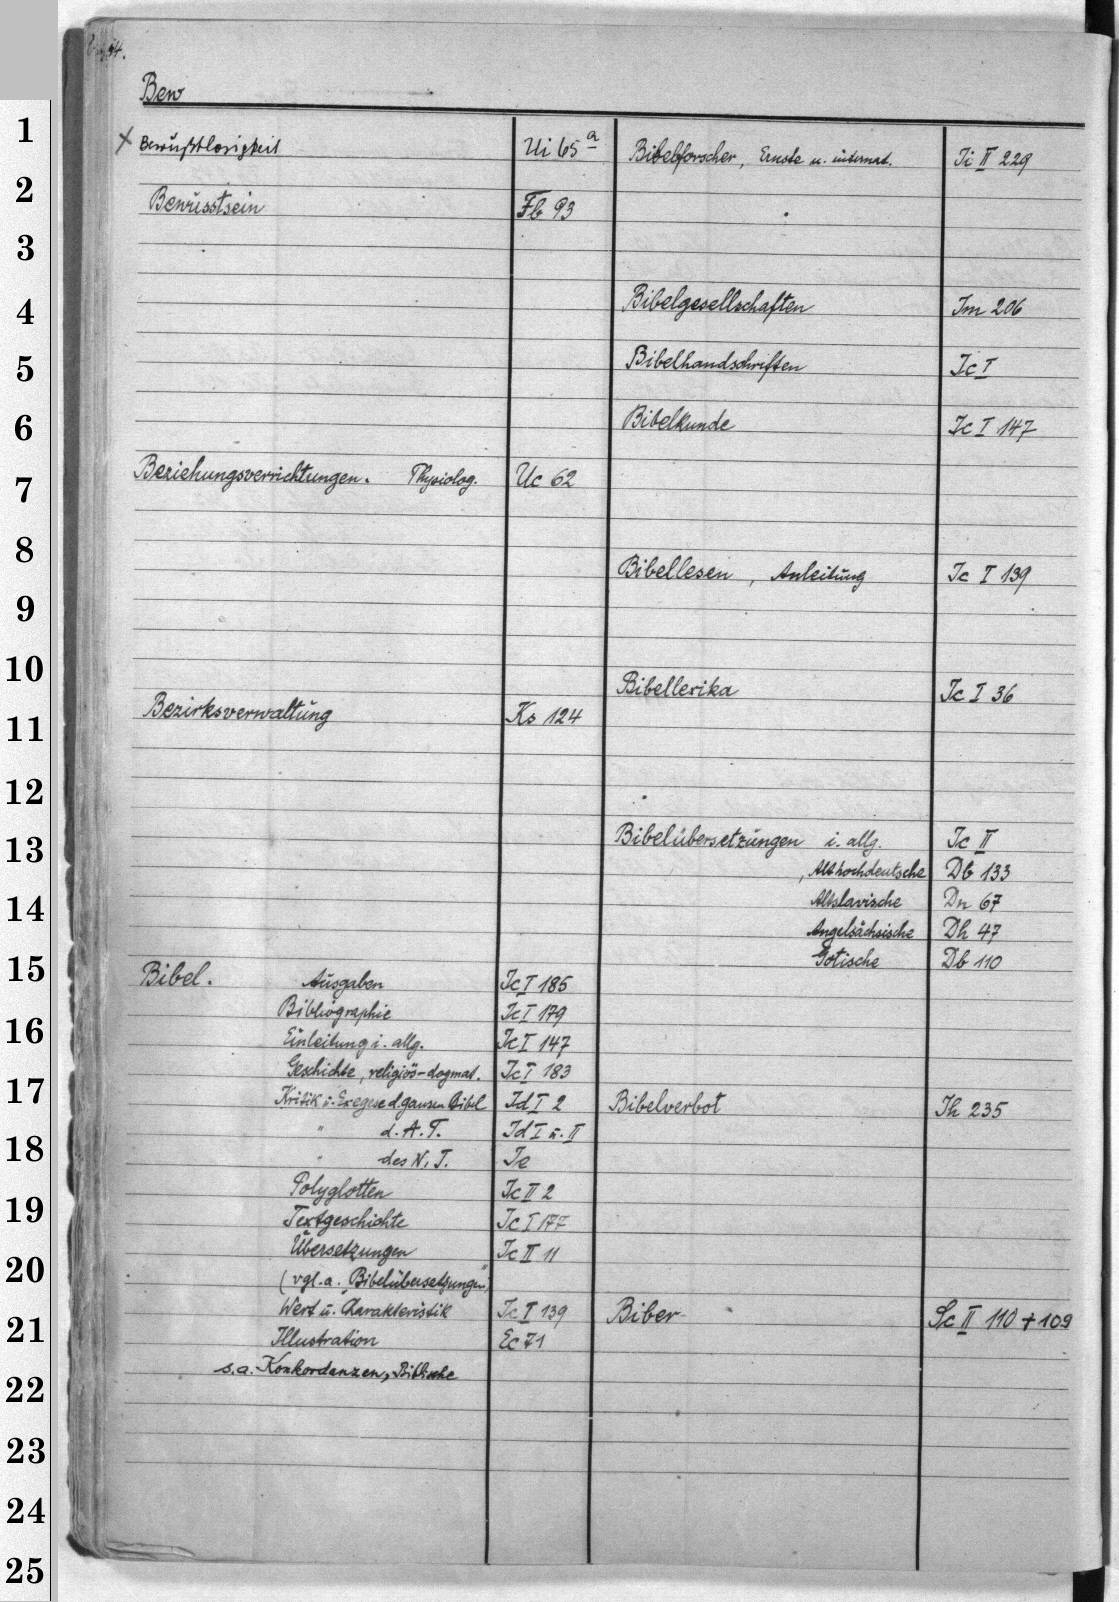 54.
Bew
x Bewußtlosigkeit Ui 65 a
Bewusstsein Fb 93
Beziehungsverrichtungen. Physiolog. Uc 62
Bezirksverwaltung Ks 124
Bibel. Ausgaben Ic I 185
Bibliographie Ic I 179
Einleitung i. allg. Ic I 147
Geschichte, religiös-dogmat. Ic I 183
Kritik u. Exegese d. ganzen Bibel Id I 2
" d. A. T. Id I u. II
" des N. T. Ie
Polyglotten Ic II 2
Textgeschichte Ic I 177
Übersetzungen Ic II 11
(vgl. a. "Bibelübersetzungen")
Wert u. Charakteristik Ic I 139
Illustration Ec 71
s. a. Konkordanzen, Biblische
Bibelforscher, Ernste u. internat. Ii II 229
Bibelgesellschaften Im 206
Bibelhandschriften Ic I
Bibelkunde Ic I 147
Bibellesen, Anleitung Ic I 139
Bibellexika Ic I 36
Bibelübersetzungen i. allg. Ic II
, Althochdeutsche Db 133
Altslavische Dn 67
Angelsächsische Dh 47
Gotische Db 110
Bibelverbot Ih 235
Biber Sc II 110 + 109
1
2
3
4
5
6
7
8
9
10
11
12
13
14
15
16
17
18
19
20
21
22
23
24
25